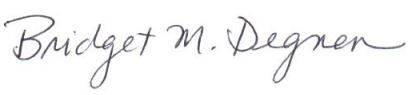 Bridget M. Degnen